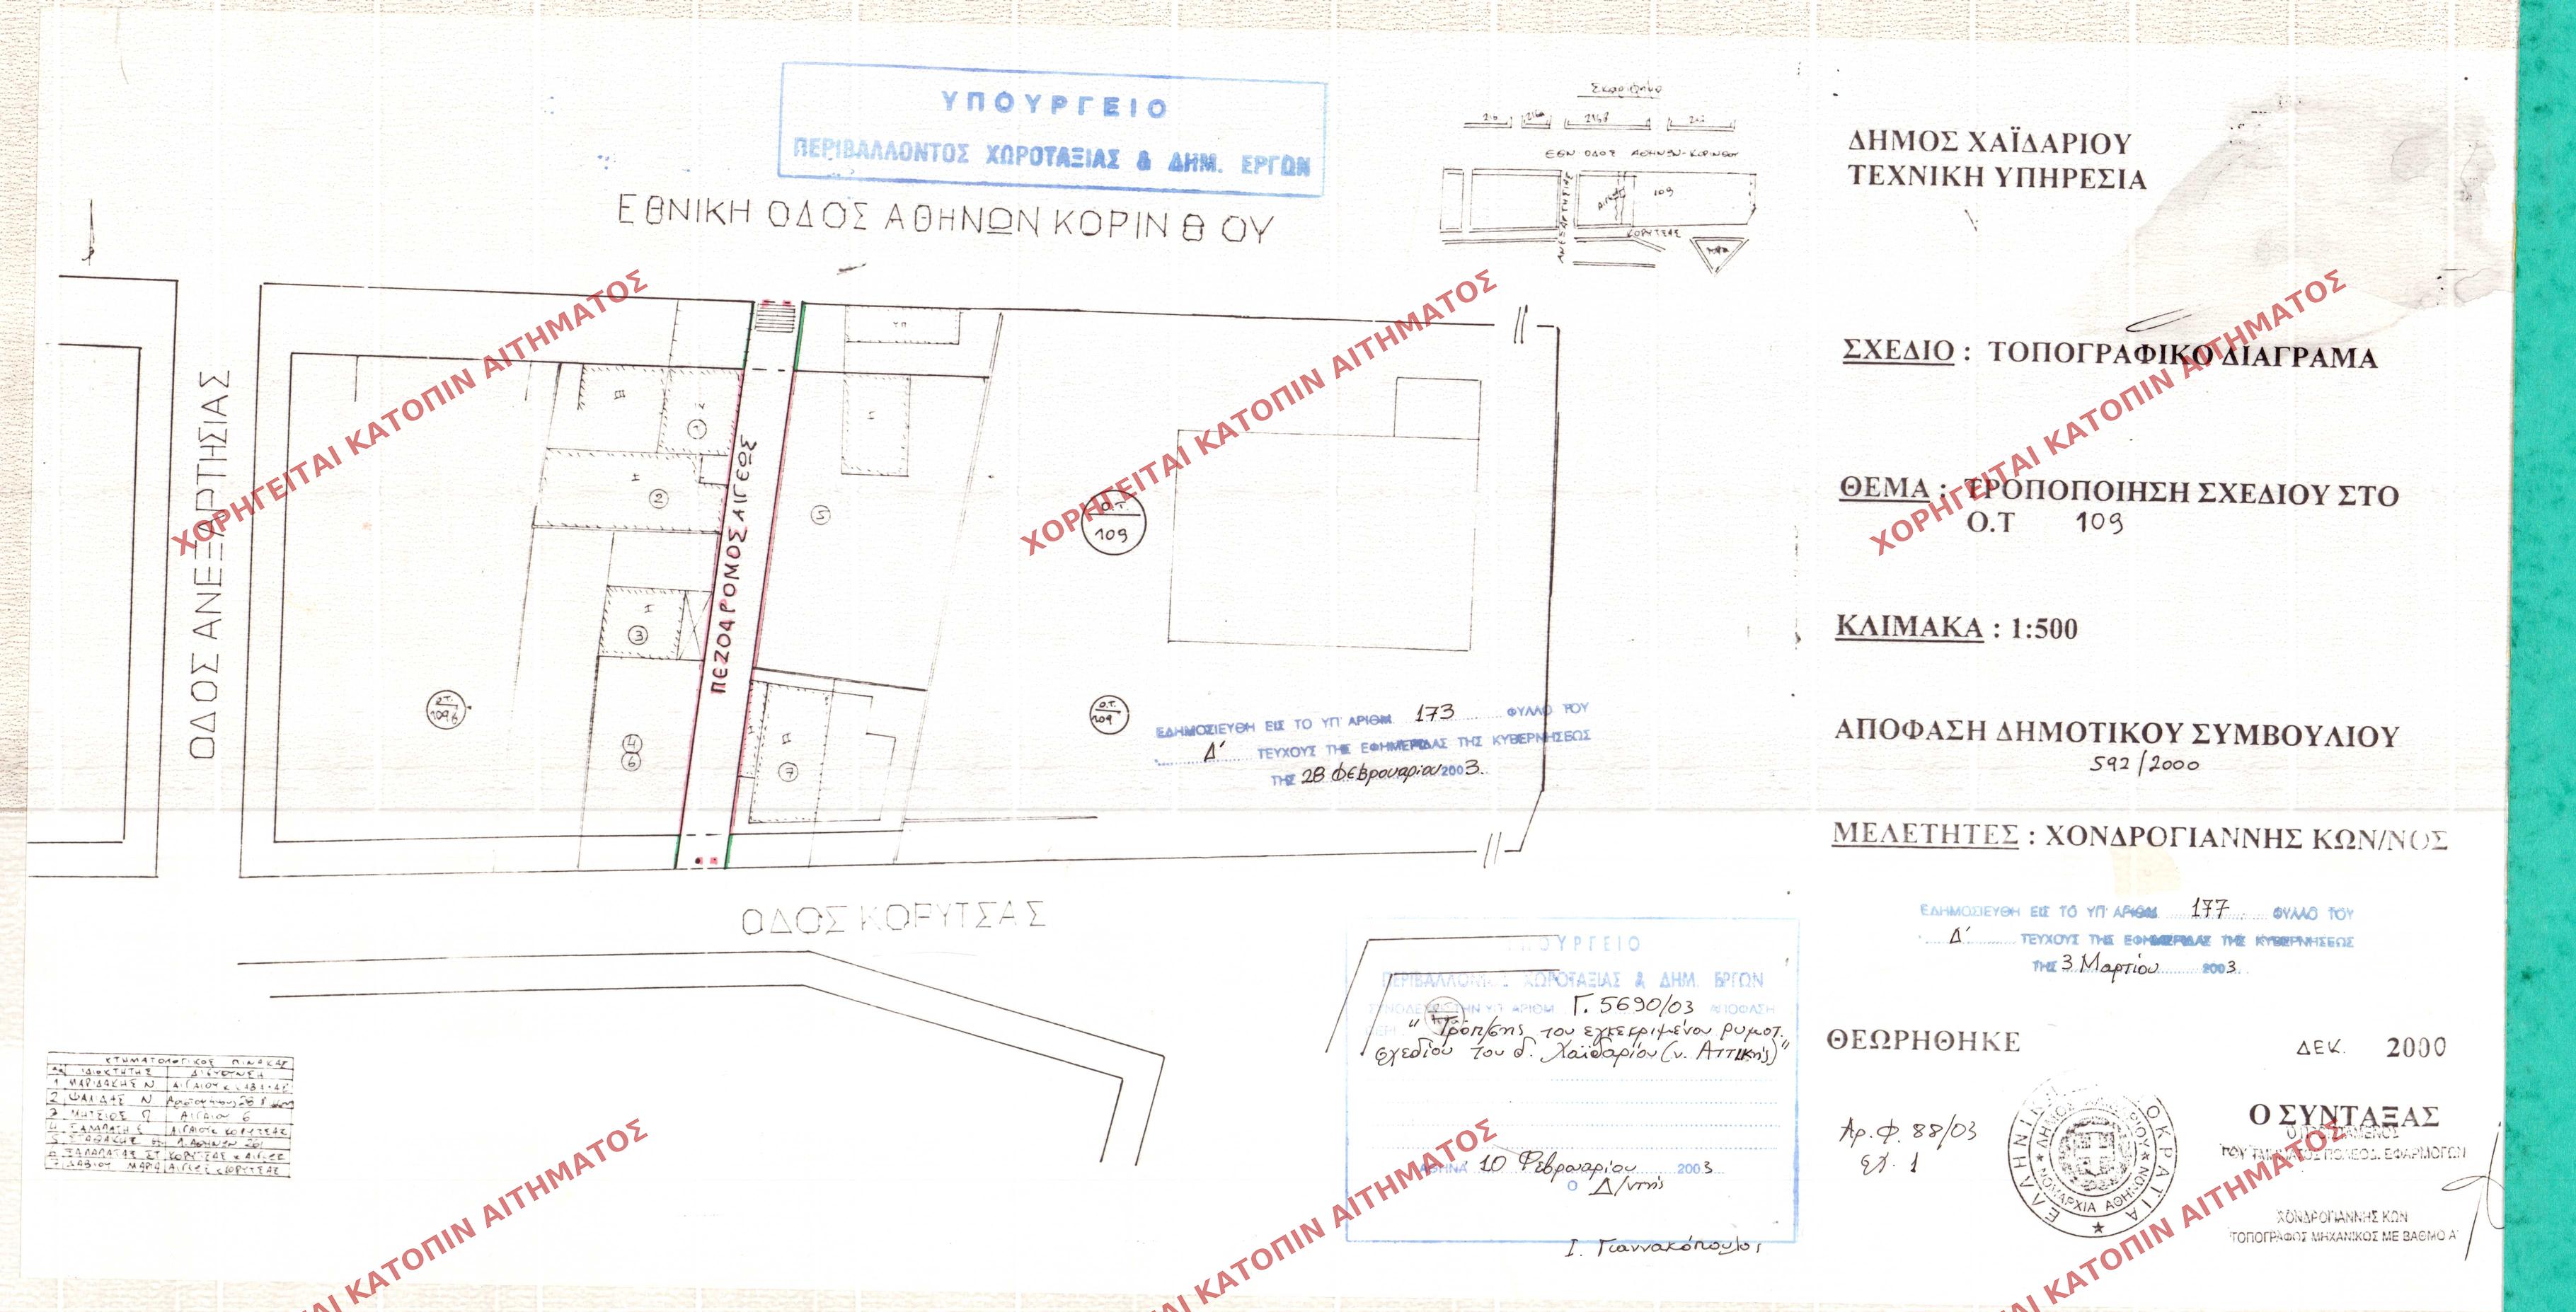 ΥΠΟΥΡΓΕΙΟ
ΠΕΡΙΒΑΛΛΟΝΤΟΣ ΧΩΡΟΤΑΞΙΑΣ & ΔΗΜ. ΕΡΓΩΝ
ΕΘΝΙΚΗ ΟΔΟΣ ΑΘΗΝΩΝ ΚΟΡΙΝΘΟΥ
Σκαρίφημα
ΕΘΝ ΟΔΟΣ ΑΘΗΝΩΝ-ΚΟΡΙΝΘΟΥ
ΑΝΕΞΑΡΤΗΣΙΑΣ
109
ΚΟΡΥΤΣΑΣ
ΔΗΜΟΣ ΧΑΪΔΑΡΙΟΥ
ΤΕΧΝΙΚΗ ΥΠΗΡΕΣΙΑ
ΣΧΕΔΙΟ : ΤΟΠΟΓΡΑΦΙΚΟ ΔΙΑΓΡΑΜΑ
ΘΕΜΑ : ΤΡΟΠΟΠΟΙΗΣΗ ΣΧΕΔΙΟΥ ΣΤΟ
Ο.Τ 109
ΚΛΙΜΑΚΑ : 1:500
ΑΠΟΦΑΣΗ ΔΗΜΟΤΙΚΟΥ ΣΥΜΒΟΥΛΙΟΥ
592/2000
ΜΕΛΕΤΗΤΕΣ : ΧΟΝΔΡΟΓΙΑΝΝΗΣ ΚΩΝ/ΝΟΣ
ΕΔΗΜΟΣΙΕΥΘΗ ΕΙΣ ΤΟ ΥΠ' ΑΡΙΘΜ 177 ΦΥΛΛΟ ΤΟΥ
Δ΄ ΤΕΥΧΟΥΣ ΤΗΣ ΕΦΗΜΕΡΙΔΑΣ ΤΗΣ ΚΥΒΕΡΝΗΣΕΩΣ
ΤΗΣ 3 Μαρτίου 2003
ΘΕΩΡΗΘΗΚΕ
ΔΕΚ. 2000
Αρ. Φ. 88/03
σχ. 1
Ο ΣΥΝΤΑΞΑΣ
ΤΟΥ ΤΜΗΜΑΤΟΣ ΠΟΛΕΟΔ. ΕΦΑΡΜΟΓΩΝ
ΧΟΝΔΡΟΓΙΑΝΝΗΣ ΚΩΝ
ΤΟΠΟΓΡΑΦΟΣ ΜΗΧΑΝΙΚΟΣ ΜΕ ΒΑΘΜΟ Α'
ΟΔΟΣ ΑΝΕΞΑΡΤΗΣΙΑΣ
ΠΕΖΟΔΡΟΜΟΣ ΑΙΓΕΩΣ
ΥΠ
1
2
3
4
6
5
7
Ο.Τ. 109
Ο.Τ. 109
Ο.Τ. 109β
ΕΔΗΜΟΣΙΕΥΘΗ ΕΙΣ ΤΟ ΥΠ' ΑΡΙΘΜ 173 ΦΥΛΛΟ ΤΟΥ
Δ΄ ΤΕΥΧΟΥΣ ΤΗΣ ΕΦΗΜΕΡΙΔΑΣ ΤΗΣ ΚΥΒΕΡΝΗΣΕΩΣ
ΤΗΣ 28 Φεβρουαρίου 2003.
ΟΔΟΣ ΚΟΡΥΤΣΑΣ
ΥΠΟΥΡΓΕΙΟ
ΠΕΡΙΒΑΛΛΟΝΤΟΣ ΧΩΡΟΤΑΞΙΑΣ & ΔΗΜ. ΕΡΓΩΝ
ΣΥΝΟΔΕΥΕΙ ΤΗΝ ΥΠ' ΑΡΙΘΜ. Γ. 5690/03 ΑΠΟΦΑΣΗ
ΠΕΡΙ "Τροπ/σης του εγκεκριμένου ρυμοτ.
σχεδίου του δ. Χαϊδαρίου (ν. Αττικής)"
ΑΘΗΝΑ 10 Φεβρουαρίου 2003
Ο Δ/ντής
Ι. Γιαννακόπουλος
ΚΤΗΜΑΤΟΛΟΓΙΚΟΣ ΠΙΝΑΚΑΣ
ΙΔΙΟΚΤΗΤΗΣ ΔΙΕΥΘΥΝΣΗ
1 ΜΑΡΙΔΑΚΗΣ Ν. ΑΙΓΑΙΟΥ
2 ΨΑΛΙΔΑΣ Ν
3 ΜΗΤΣΙΟΣ Π ΑΙΓΑΙΟΥ 6
ΚΟΡΥΤΣΑΣ
ΜΑΡΙΑ ΚΟΡΥΤΣΑΣ
ΕΛΛΗΝΙΚΗ ΔΗΜΟΚΡΑΤΙΑ
ΝΟΜΑΡΧΙΑ ΑΘΗΝΩΝ
ΧΟΡΗΓΕΙΤΑΙ ΚΑΤΟΠΙΝ ΑΙΤΗΜΑΤΟΣ
ΧΟΡΗΓΕΙΤΑΙ ΚΑΤΟΠΙΝ ΑΙΤΗΜΑΤΟΣ
ΧΟΡΗΓΕΙΤΑΙ ΚΑΤΟΠΙΝ ΑΙΤΗΜΑΤΟΣ
ΑΙ ΚΑΤΟΠΙΝ ΑΙΤΗΜΑΤΟΣ
ΑΙ ΚΑΤΟΠΙΝ ΑΙΤΗΜΑΤΟΣ
ΑΙ ΚΑΤΟΠΙΝ ΑΙΤΗΜΑΤΟΣ